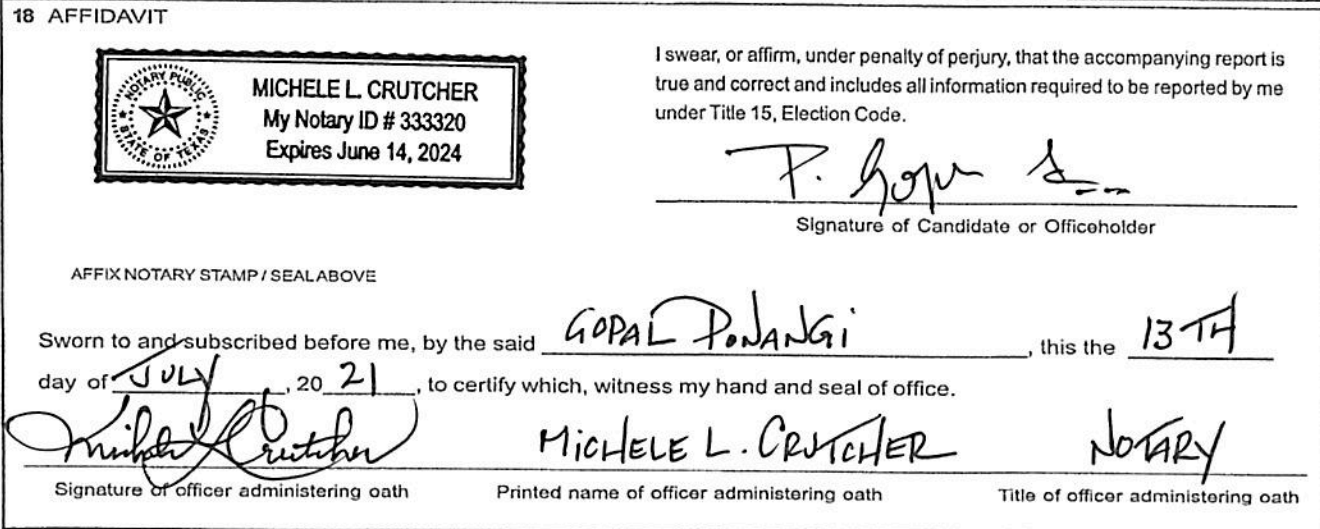 18 AFFIDAVIT
NOTARY PUBLIC
STATE OF TEXAS
MICHELE L. CRUTCHER
My Notary ID # 333320
Expires June 14, 2024
I swear, or affirm, under penalty of perjury, that the accompanying report is
true and correct and includes all information required to be reported by me
under Title 15, Election Code.
P. Gopal
Signature of Candidate or Officeholder
AFFIX NOTARY STAMP / SEAL ABOVE
Sworn to and subscribed before me, by the said GOPAL PONANGI, this the 13TH
day of JULY, 20 21, to certify which, witness my hand and seal of office.
Michele Crutcher MICHELE L. CRUTCHER NOTARY
Signature of officer administering oath Printed name of officer administering oath Title of officer administering oath